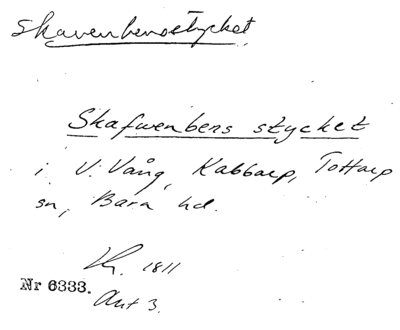 Skavenbensstycket
Skafwenbens stycket
i V. Vång, Kabbarp, Tottarp
sn, Bara hd.
Lm. 1811
Nr 6333.
Akt 3.